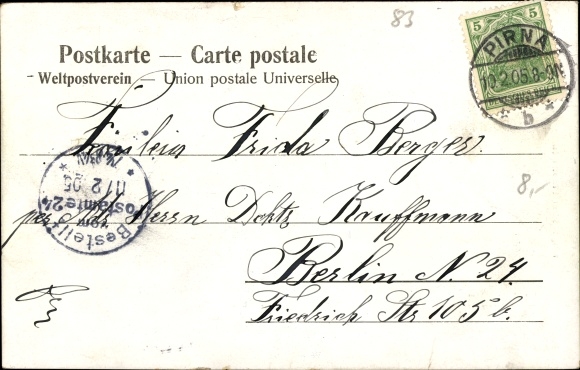 83
Postkarte — Carte postale
Weltpostverein — Union postale Universelle
5 5
PIRNA
10.2.05.8-9N.
* b *
Fräulein Frida Berger.
Bestellt
vom
Postamte 24
11/2.05
per Adr. Herrn Dokts Kauffmann
8,-
Berlin N. 24.
Friedrich Str 105 b.